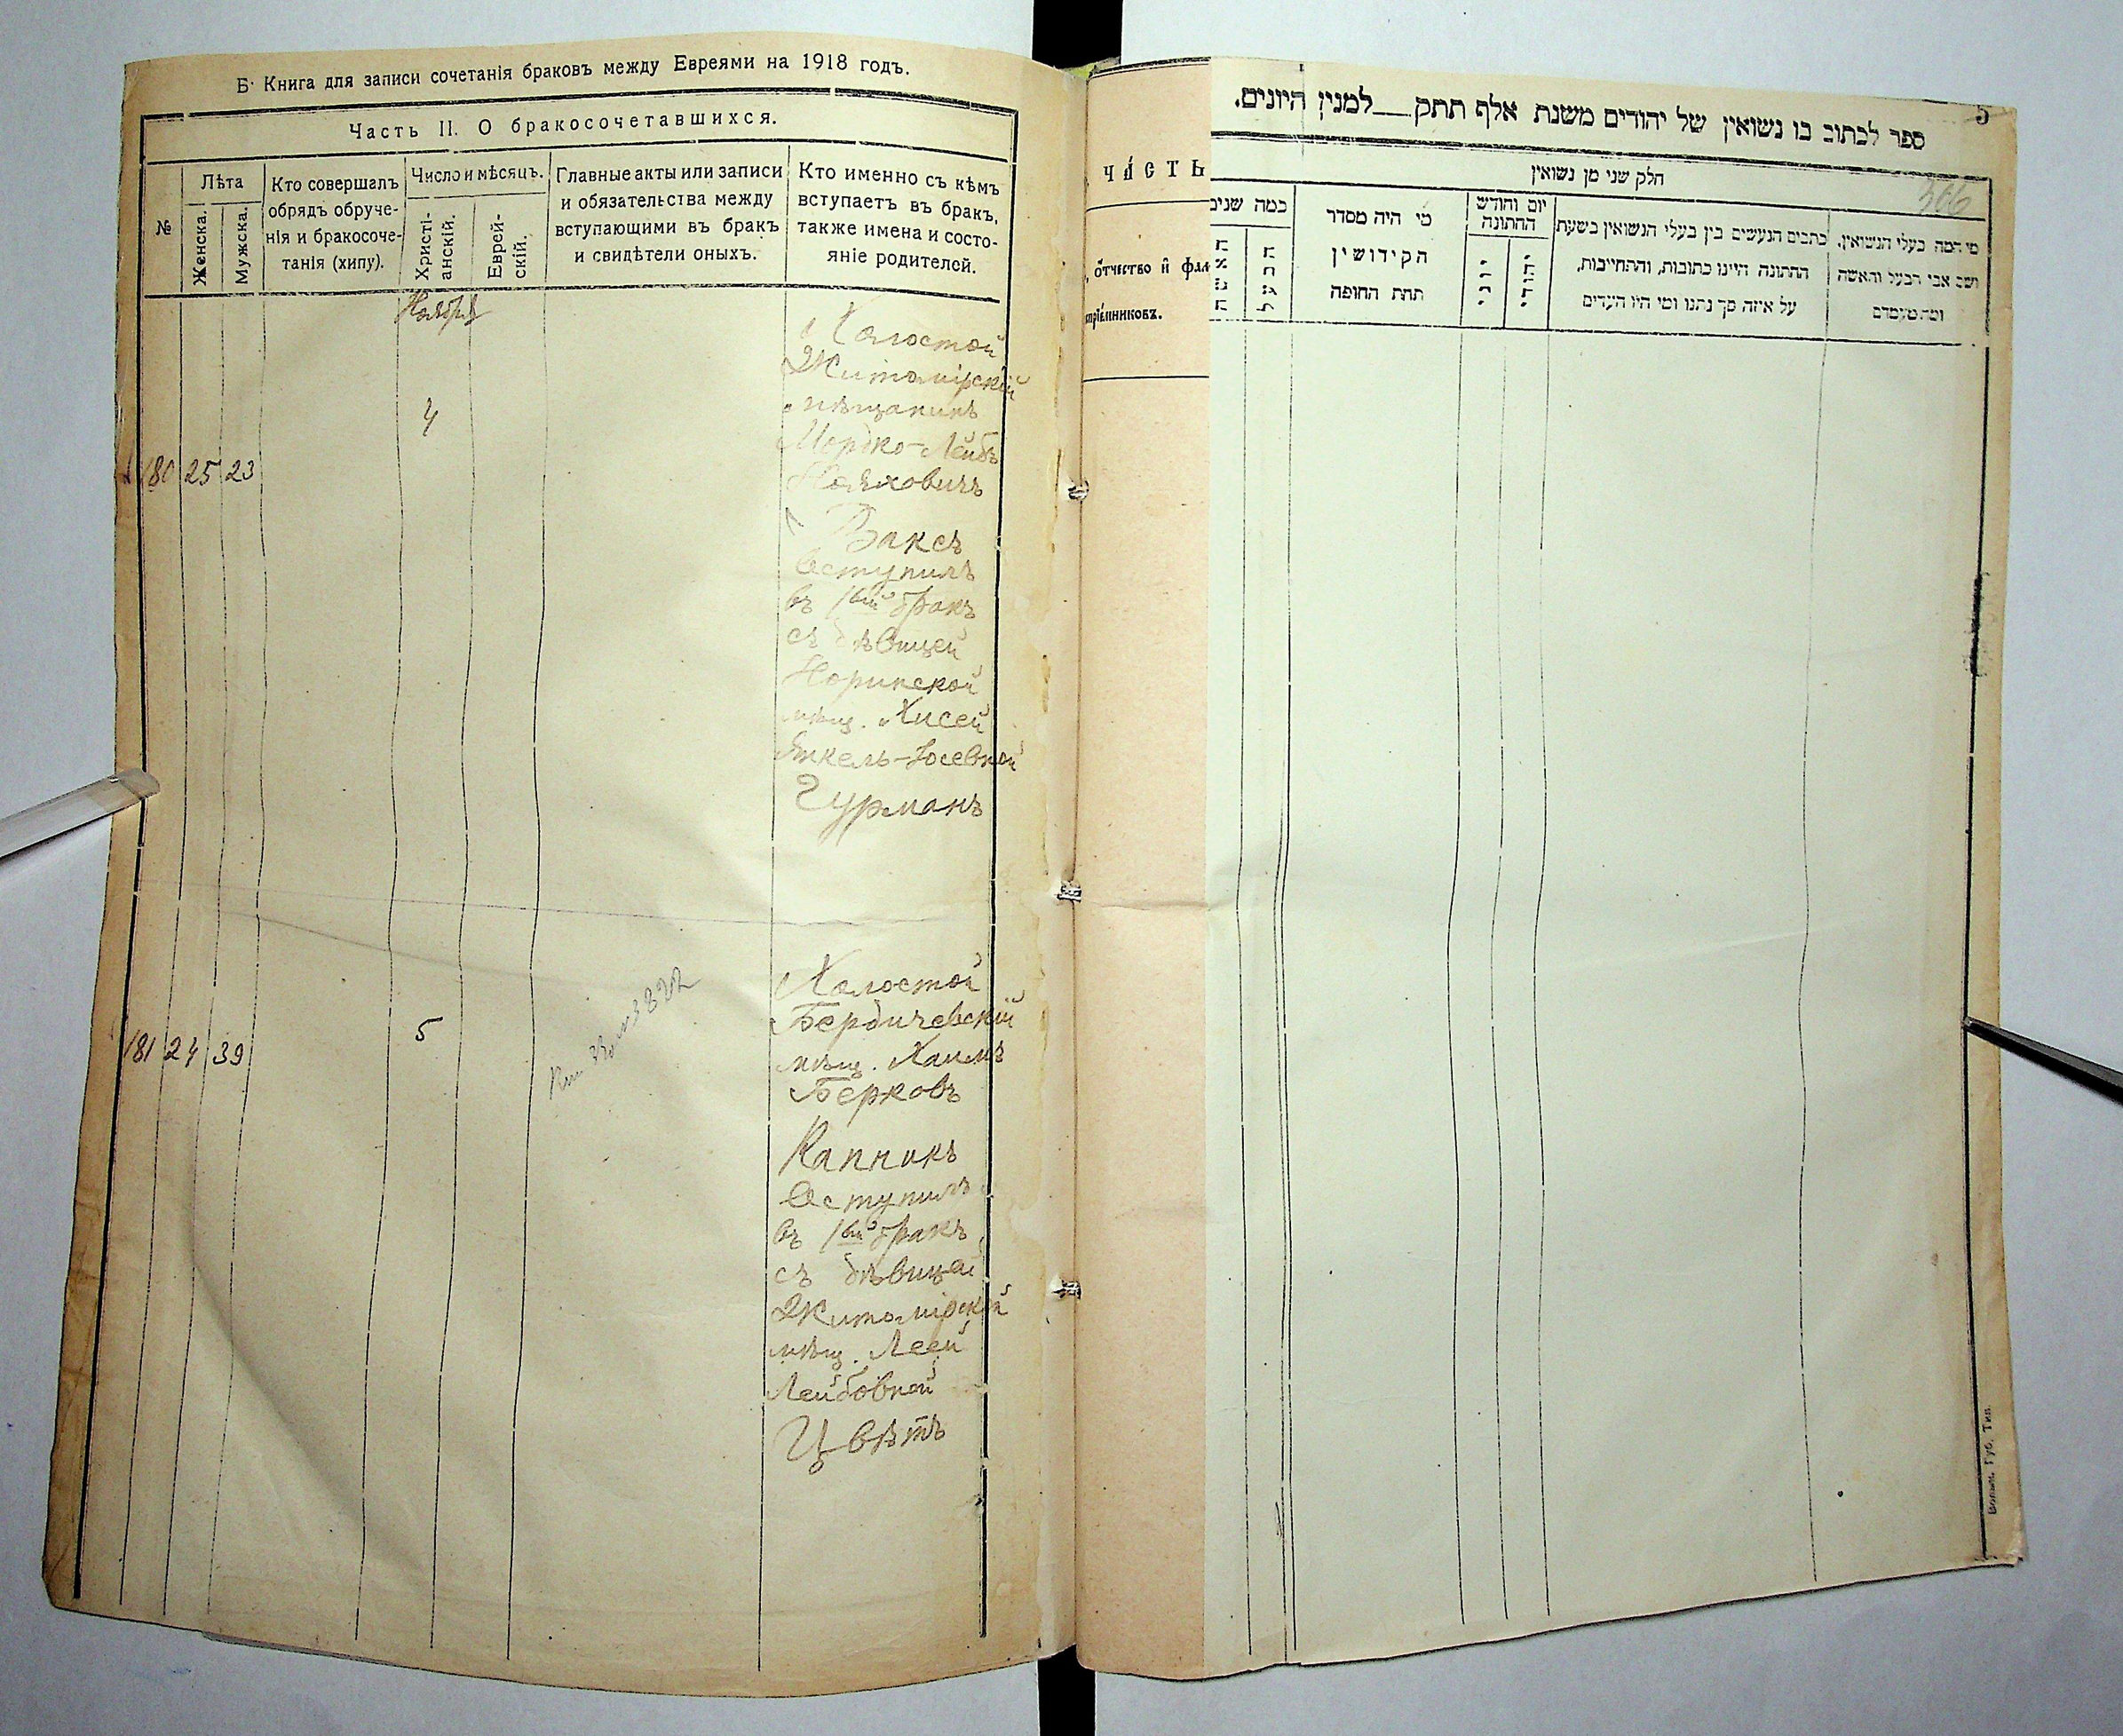 Б. Книга для записи сочетанія браковъ между Евреями на 1918 годъ.
Часть II. О бракосочетавшихся.
№
Лѣта
Женска.
Мужска.
Кто совершалъ
обрядъ обруче-
нія и бракосоче-
танія (хипу).
Число и мѣсяцъ.
Христі-
анскій.
Еврей-
скій.
Главные акты или записи
и обязательства между
вступающими въ бракъ
и свидѣтели оныхъ.
Кто именно съ кѣмъ
вступаетъ въ бракъ,
также имена и состо-
яніе родителей.
Ноября
180 25 23
4
Холостой
Житомірскій
мѣщанинъ
Мордко-Лейбъ
Ваксъ
Вступилъ
въ 1вый бракъ
съ дѣвицей
Норинской
мѣщ. Хисей
Янкель-Іосевной
Гурманъ
181 24 39
5
Холостой
Бердичевскій
мѣщ. Хаимъ
Берковъ
Капникъ
Вступилъ
въ 1вый бракъ
съ дѣвицей
Житомірской
мѣщ. Леей
Лейбовной
Цвѣтъ
ЧАСТЬ
отчество и фам
пріемниковъ.
5
306
ספר לכתוב בו נשואין של יהודים משנת אלף תתק__למנין היונים.
חלק שני מן נשואין
כמה שנים
האשה
הבעל
מי היה מסדר
הקידושין
תחת החופה
יום וחודש
החתונה
יוני
יהודי
כתבים הנעשים בין בעלי הנשואין בשעת
החתונה היינו כתובות, והתחייבות,
על איזה סך נתנו ומי היו העדים
מי המה בעלי הנשואין,
ושם אבי הבעל והאשה
ומה מעמדם
Волын. Губ. Тип.